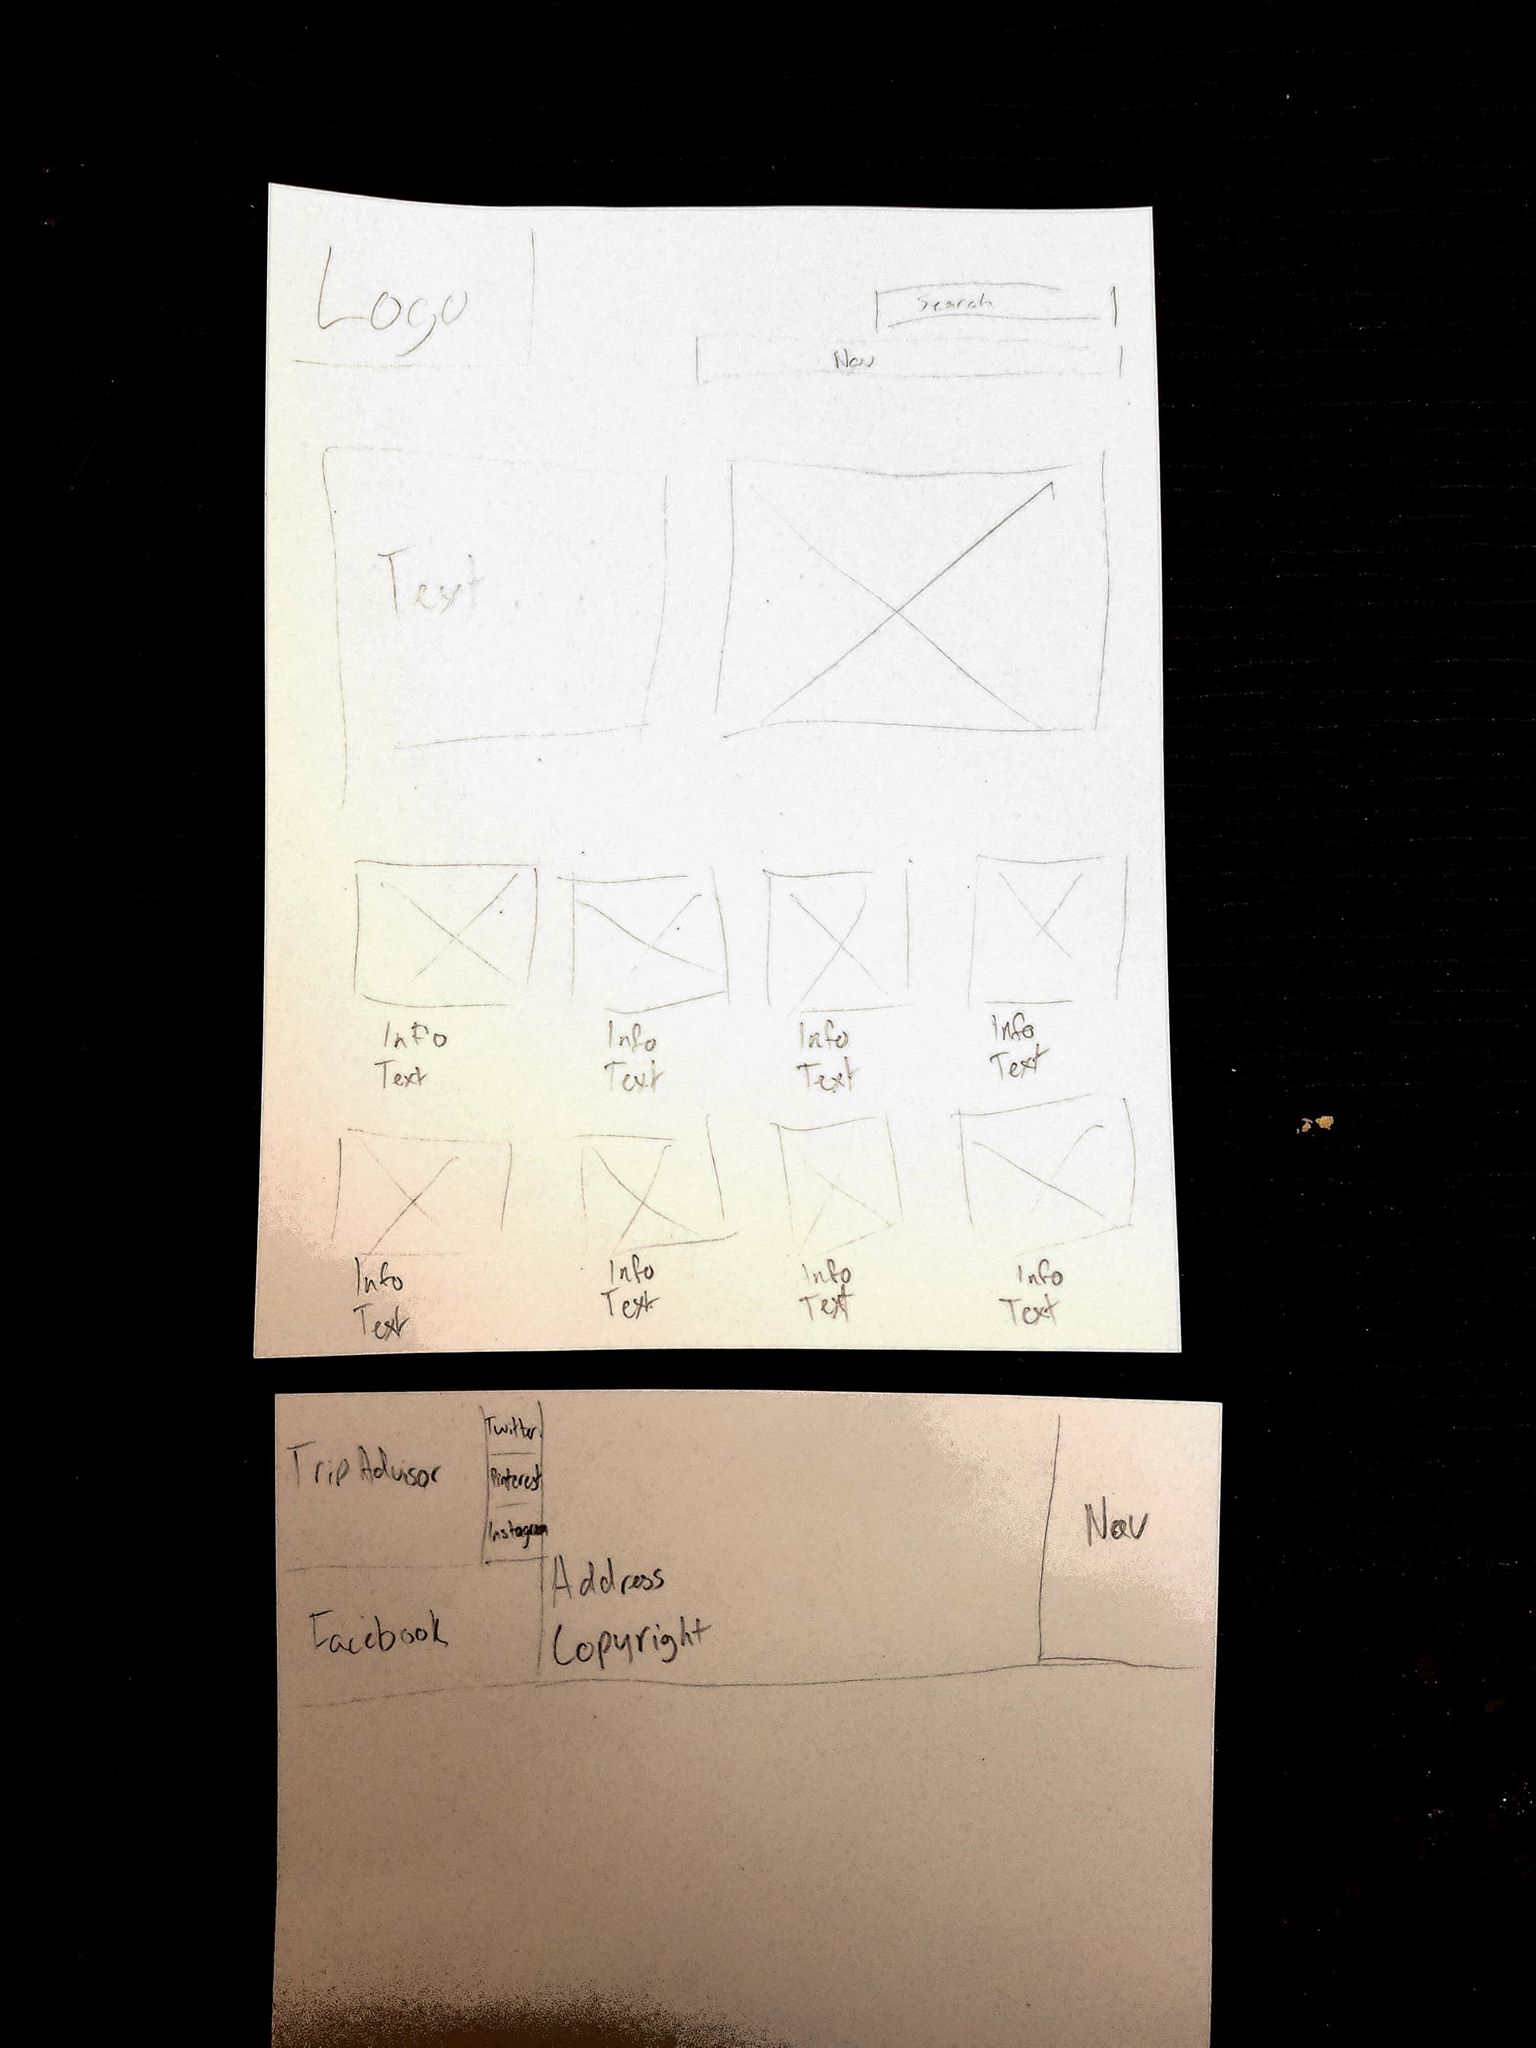 Logo
Search
Nav
Text
Info
Text
Info
Text
Info
Text
Info
Text
Info
Text
Info
Text
Info
Text
Info
Text
TripAdvisor
Twitter
Pinterest
Instagram
Facebook
Address
Copyright
Nav